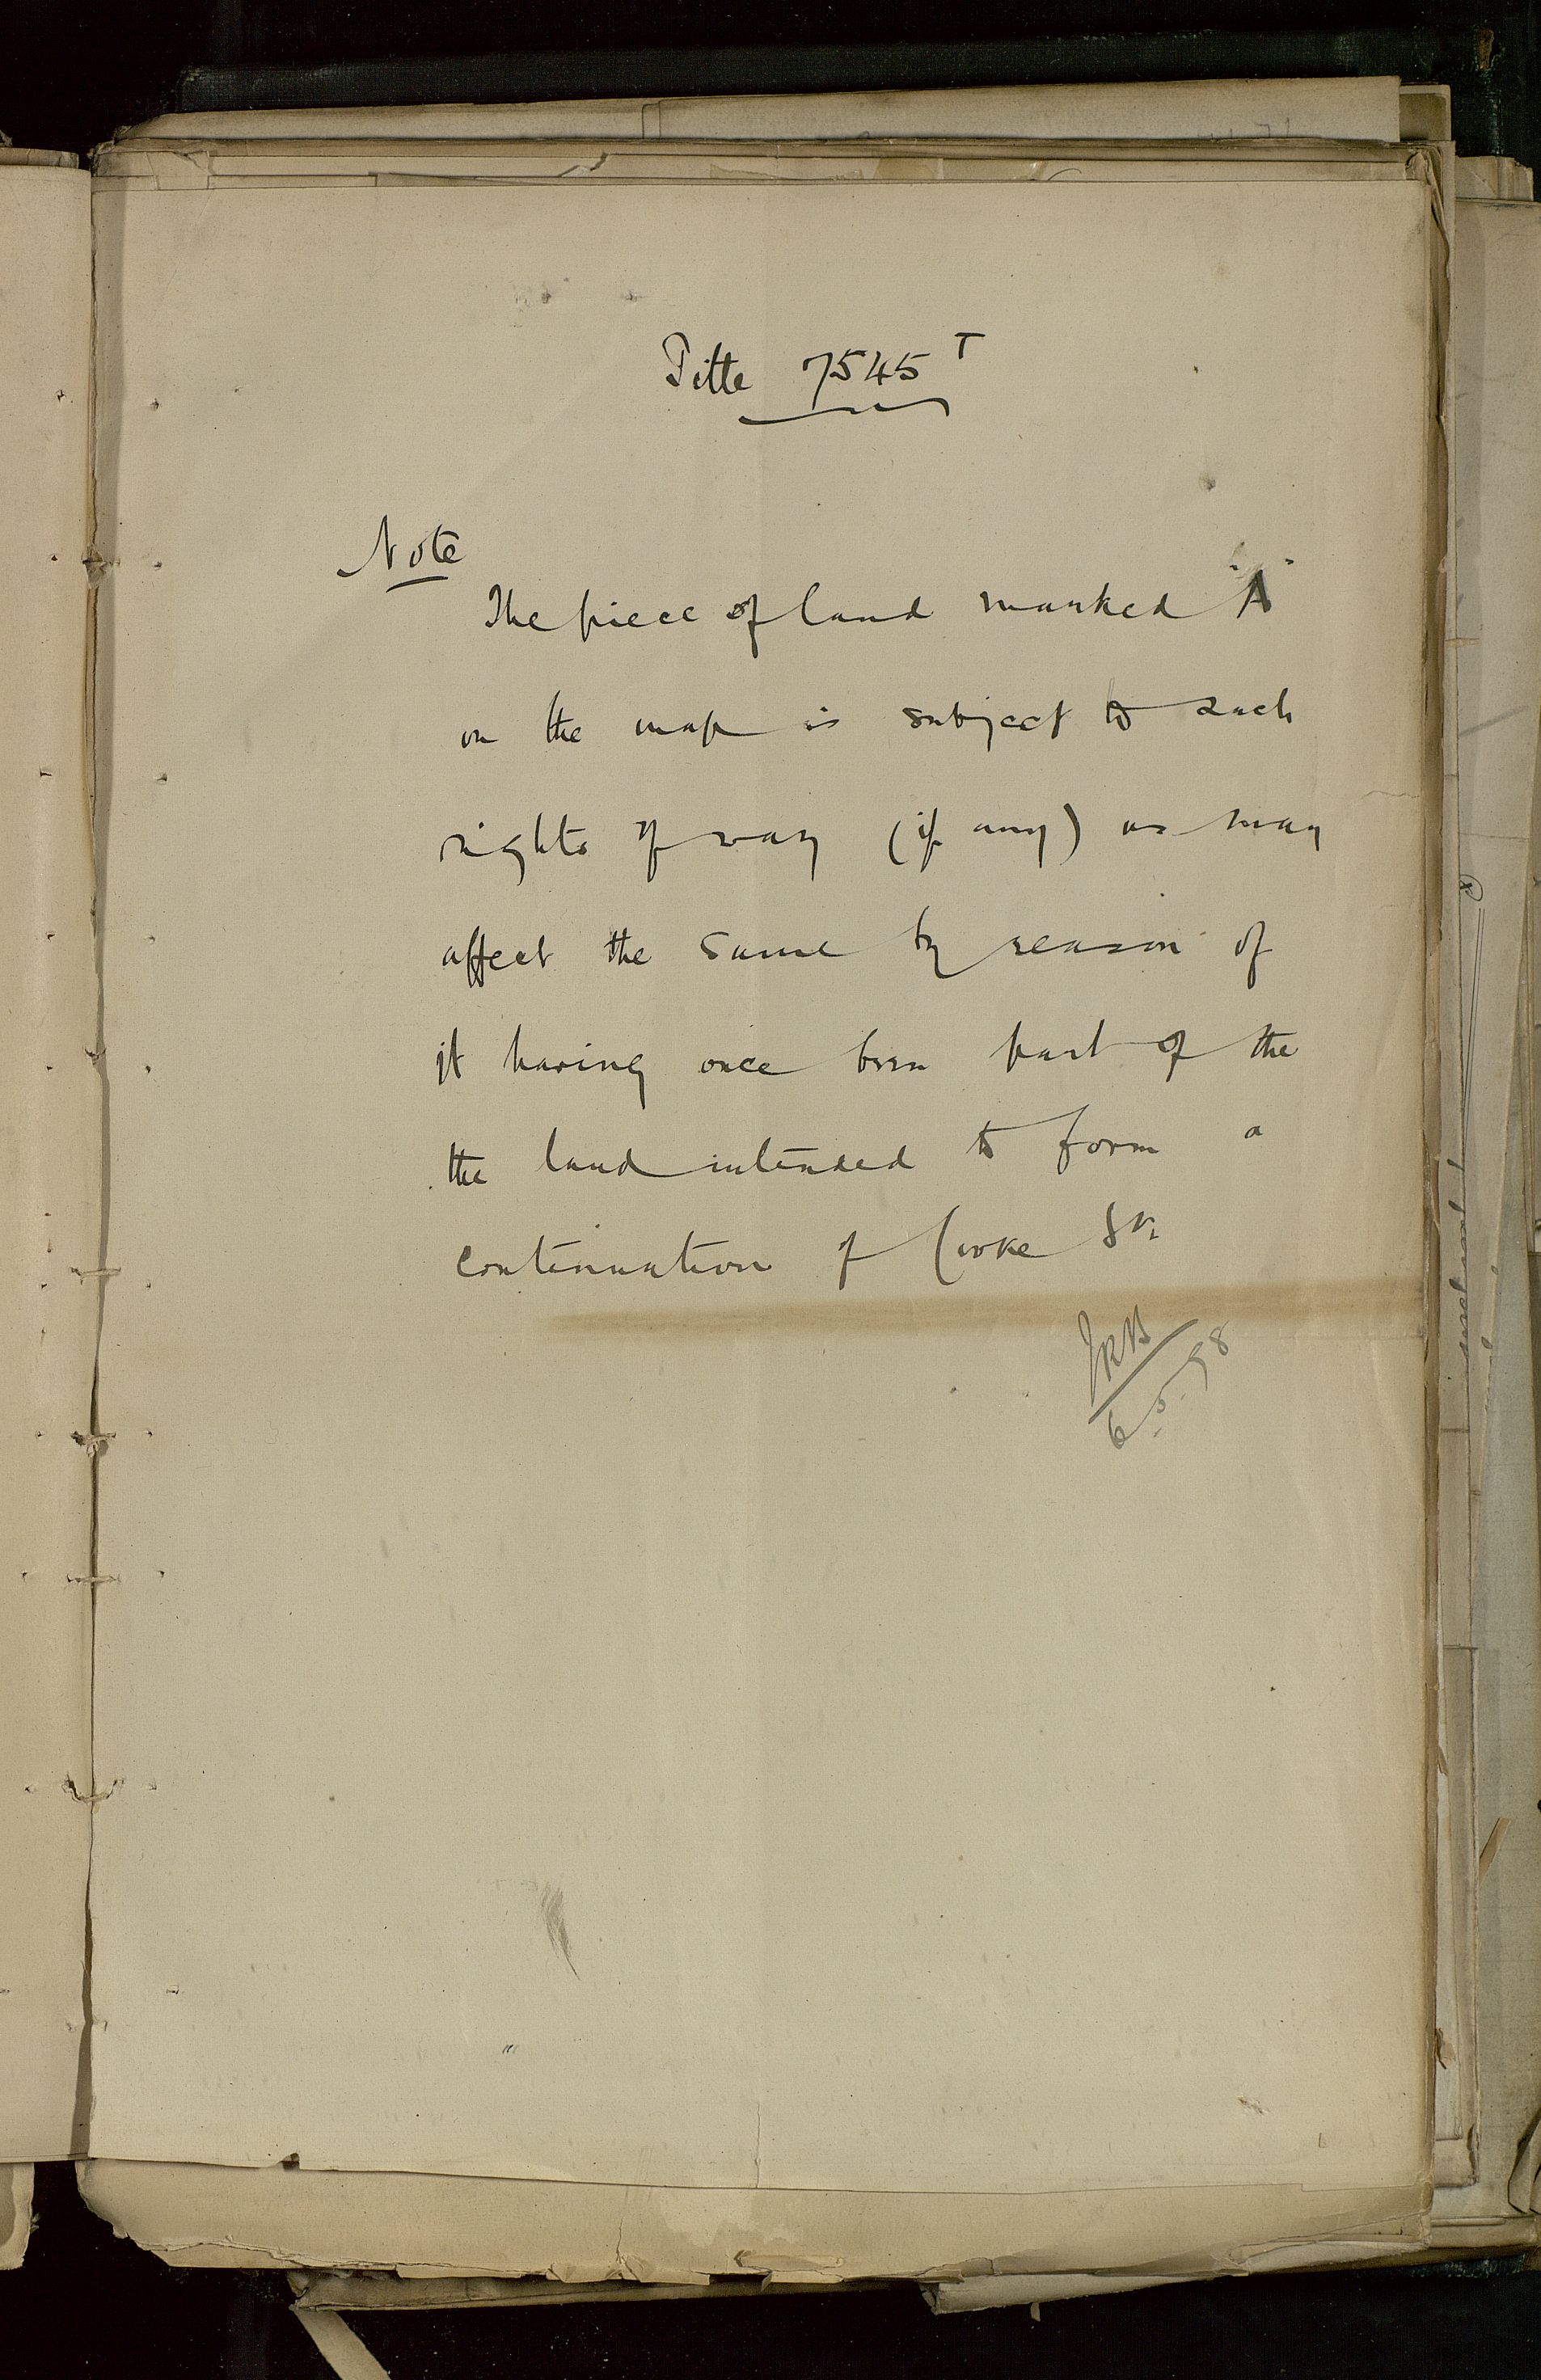 Title 7545 T
Note
The piece of land marked "A"
on the map is subject to such
rights of way (if any) as may
affect the same by reason of
it having once been part of the
the land intended to form a
continuation of Cooke St.
6.5.98